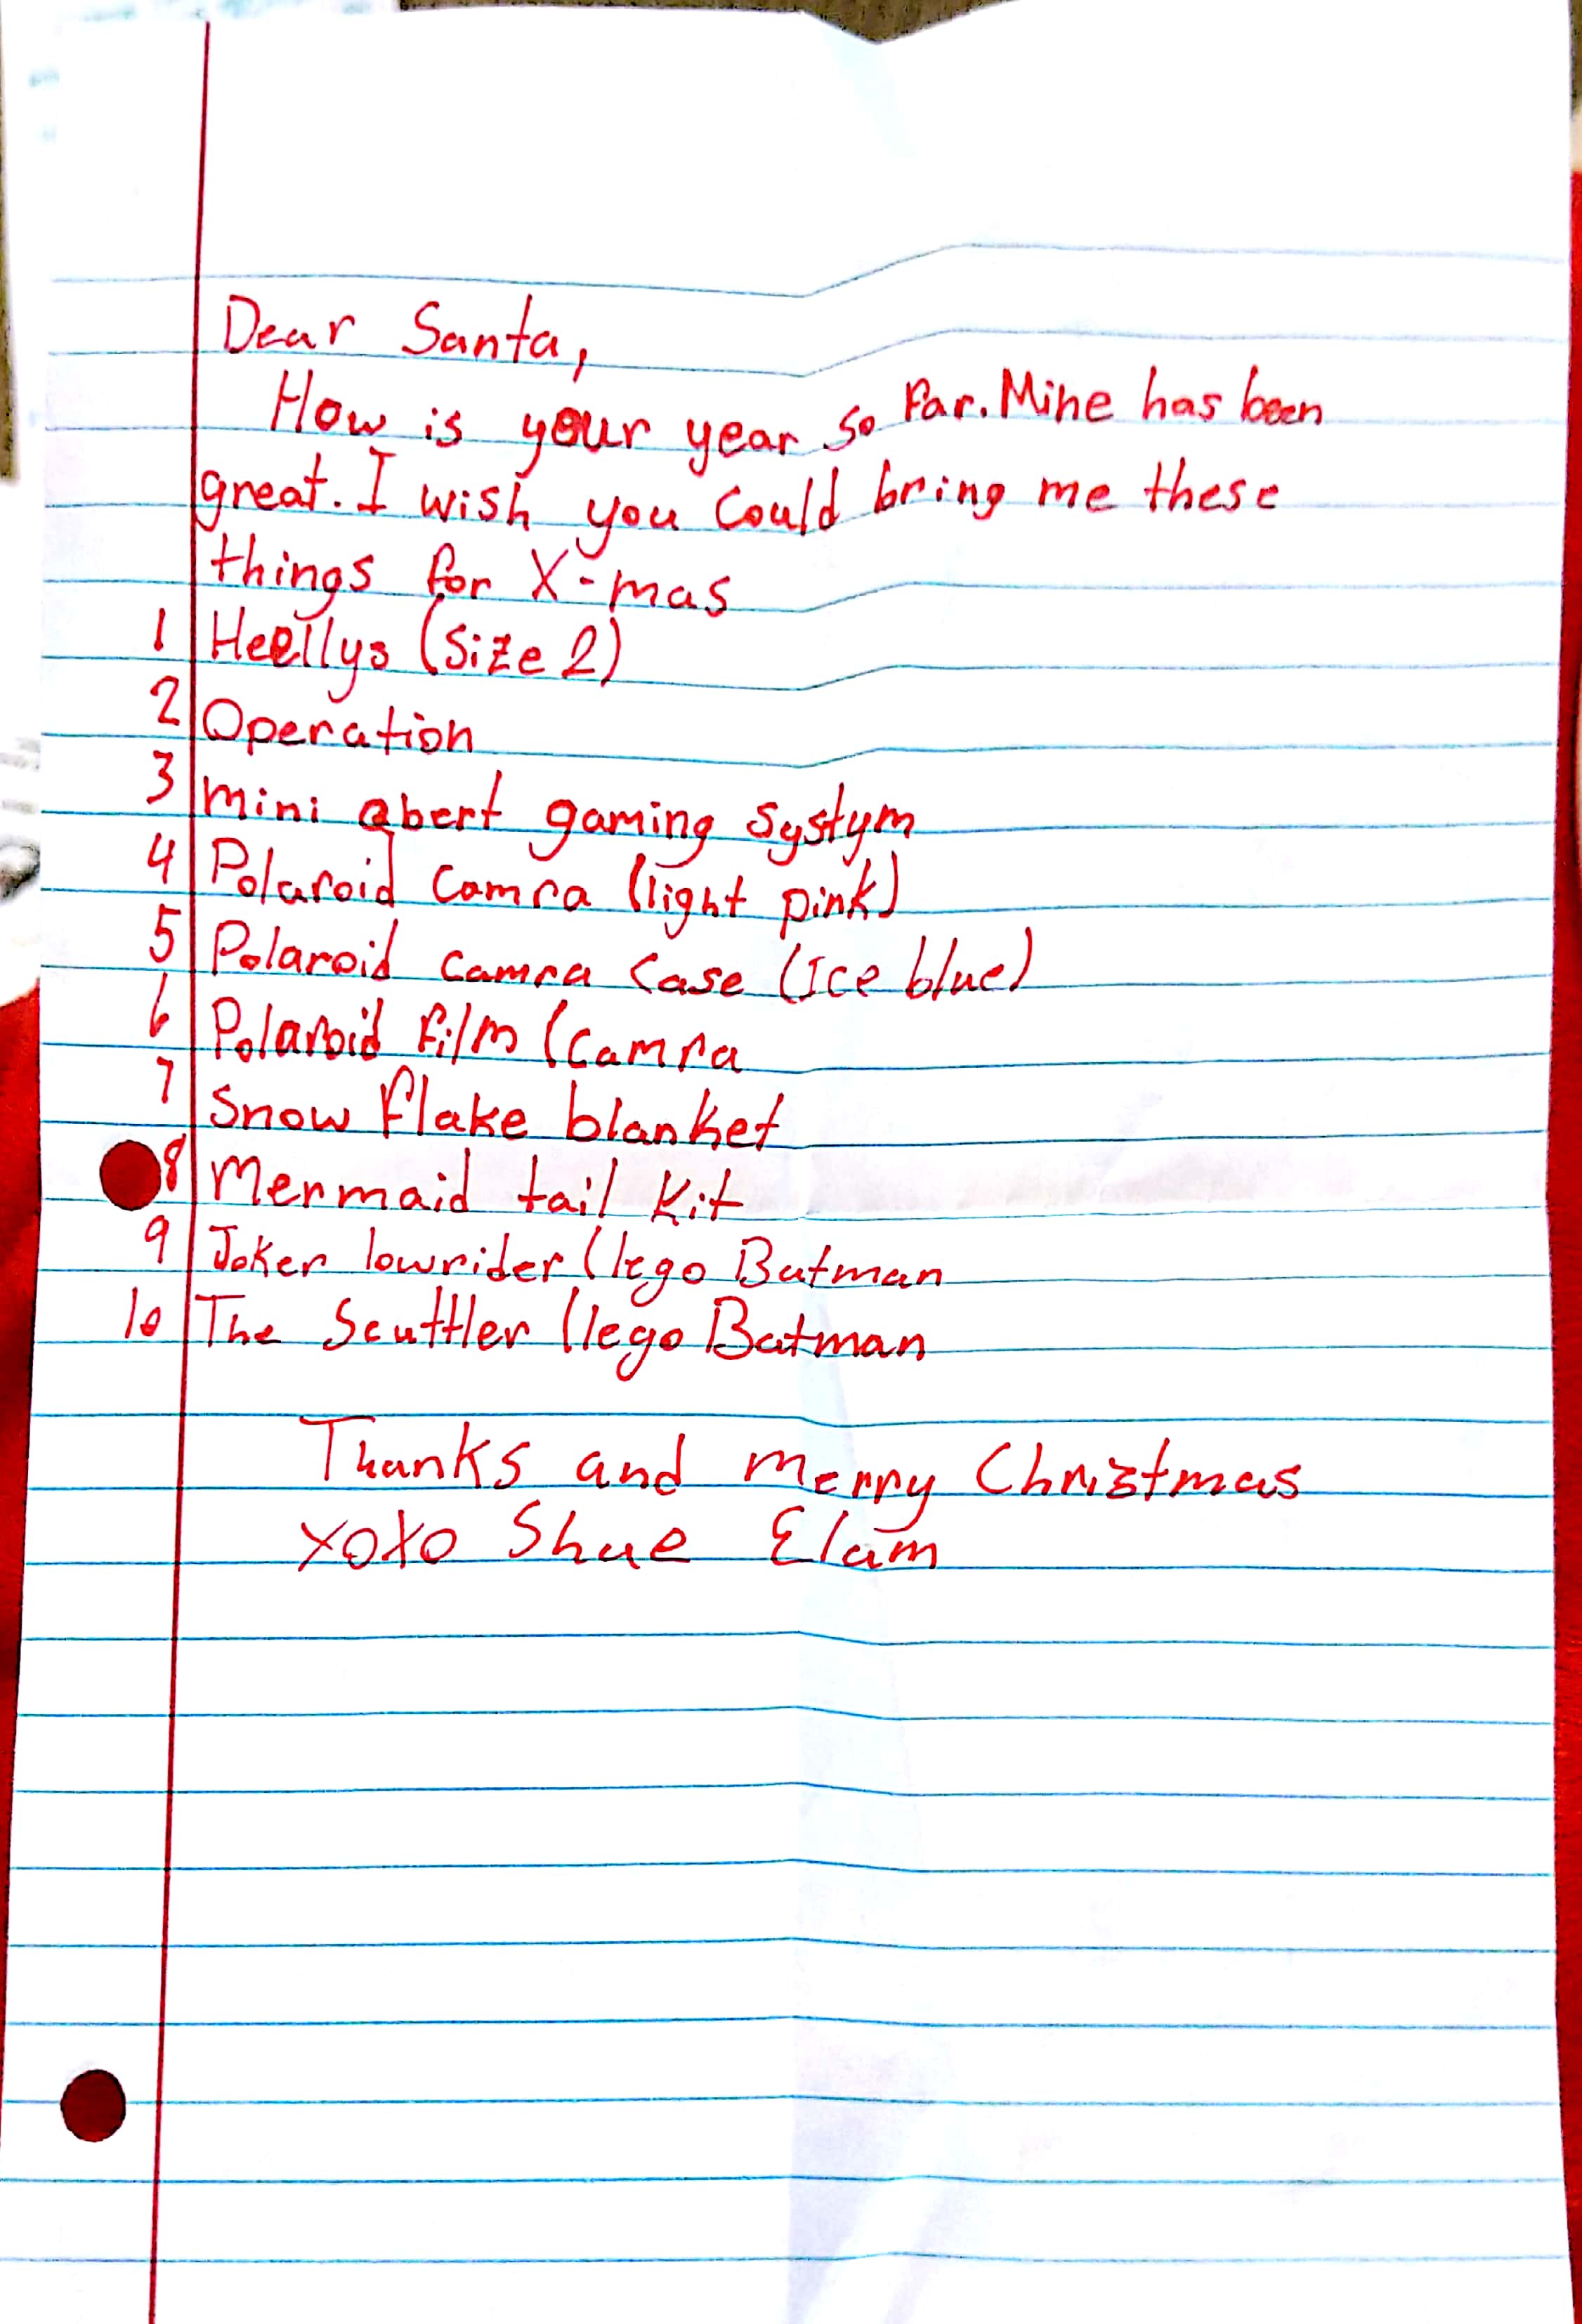 Dear Santa,
How is your year so far. Mine has been
great. I wish you could bring me these
things for X-mas
1 Heellys (Size 2)
2 Operation
3 mini Qbert gaming systym
4 Polaroid camra (light pink)
5 Polaroid camra case (Ice blue)
6 Polaroid film (camra
7 Snow flake blanket
8 Mermaid tail kit
9 Joker lowrider (lego Batman
10 The Scuttler (lego Batman
Thanks and merry Christmas
xoxo Shae Elam